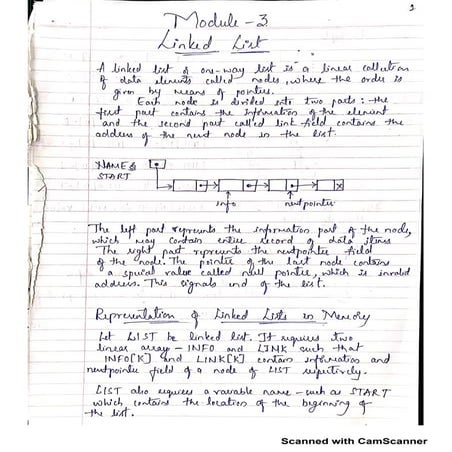 2
Module - 3
Linked List
A linked list or one-way list is a linear collection
of data elements called nodes, where the order is
given by means of pointers.
Each node is divided into two parts : the
first part contains the information of the element
and the second part called link field contains the
address of the next node in the list.
NAME &
START
info
nextpointer
The left part represents the information part of the node,
which may contain entire record of data items
The right part represents the nextpointer field
of the node. The pointer of the last node contains
a special value called null pointer, which is invalid
address. This signals end of the list.
Representation of Linked Lists in Memory
Let LIST be linked list. It requires two
linear array - INFO and LINK such that
INFO[K] and LINK[K] contain information and
nextpointer field of a node of LIST respectively.
LIST also requires a variable name - such as START
which contains the location of the beginning of
the list.
Scanned with CamScanner